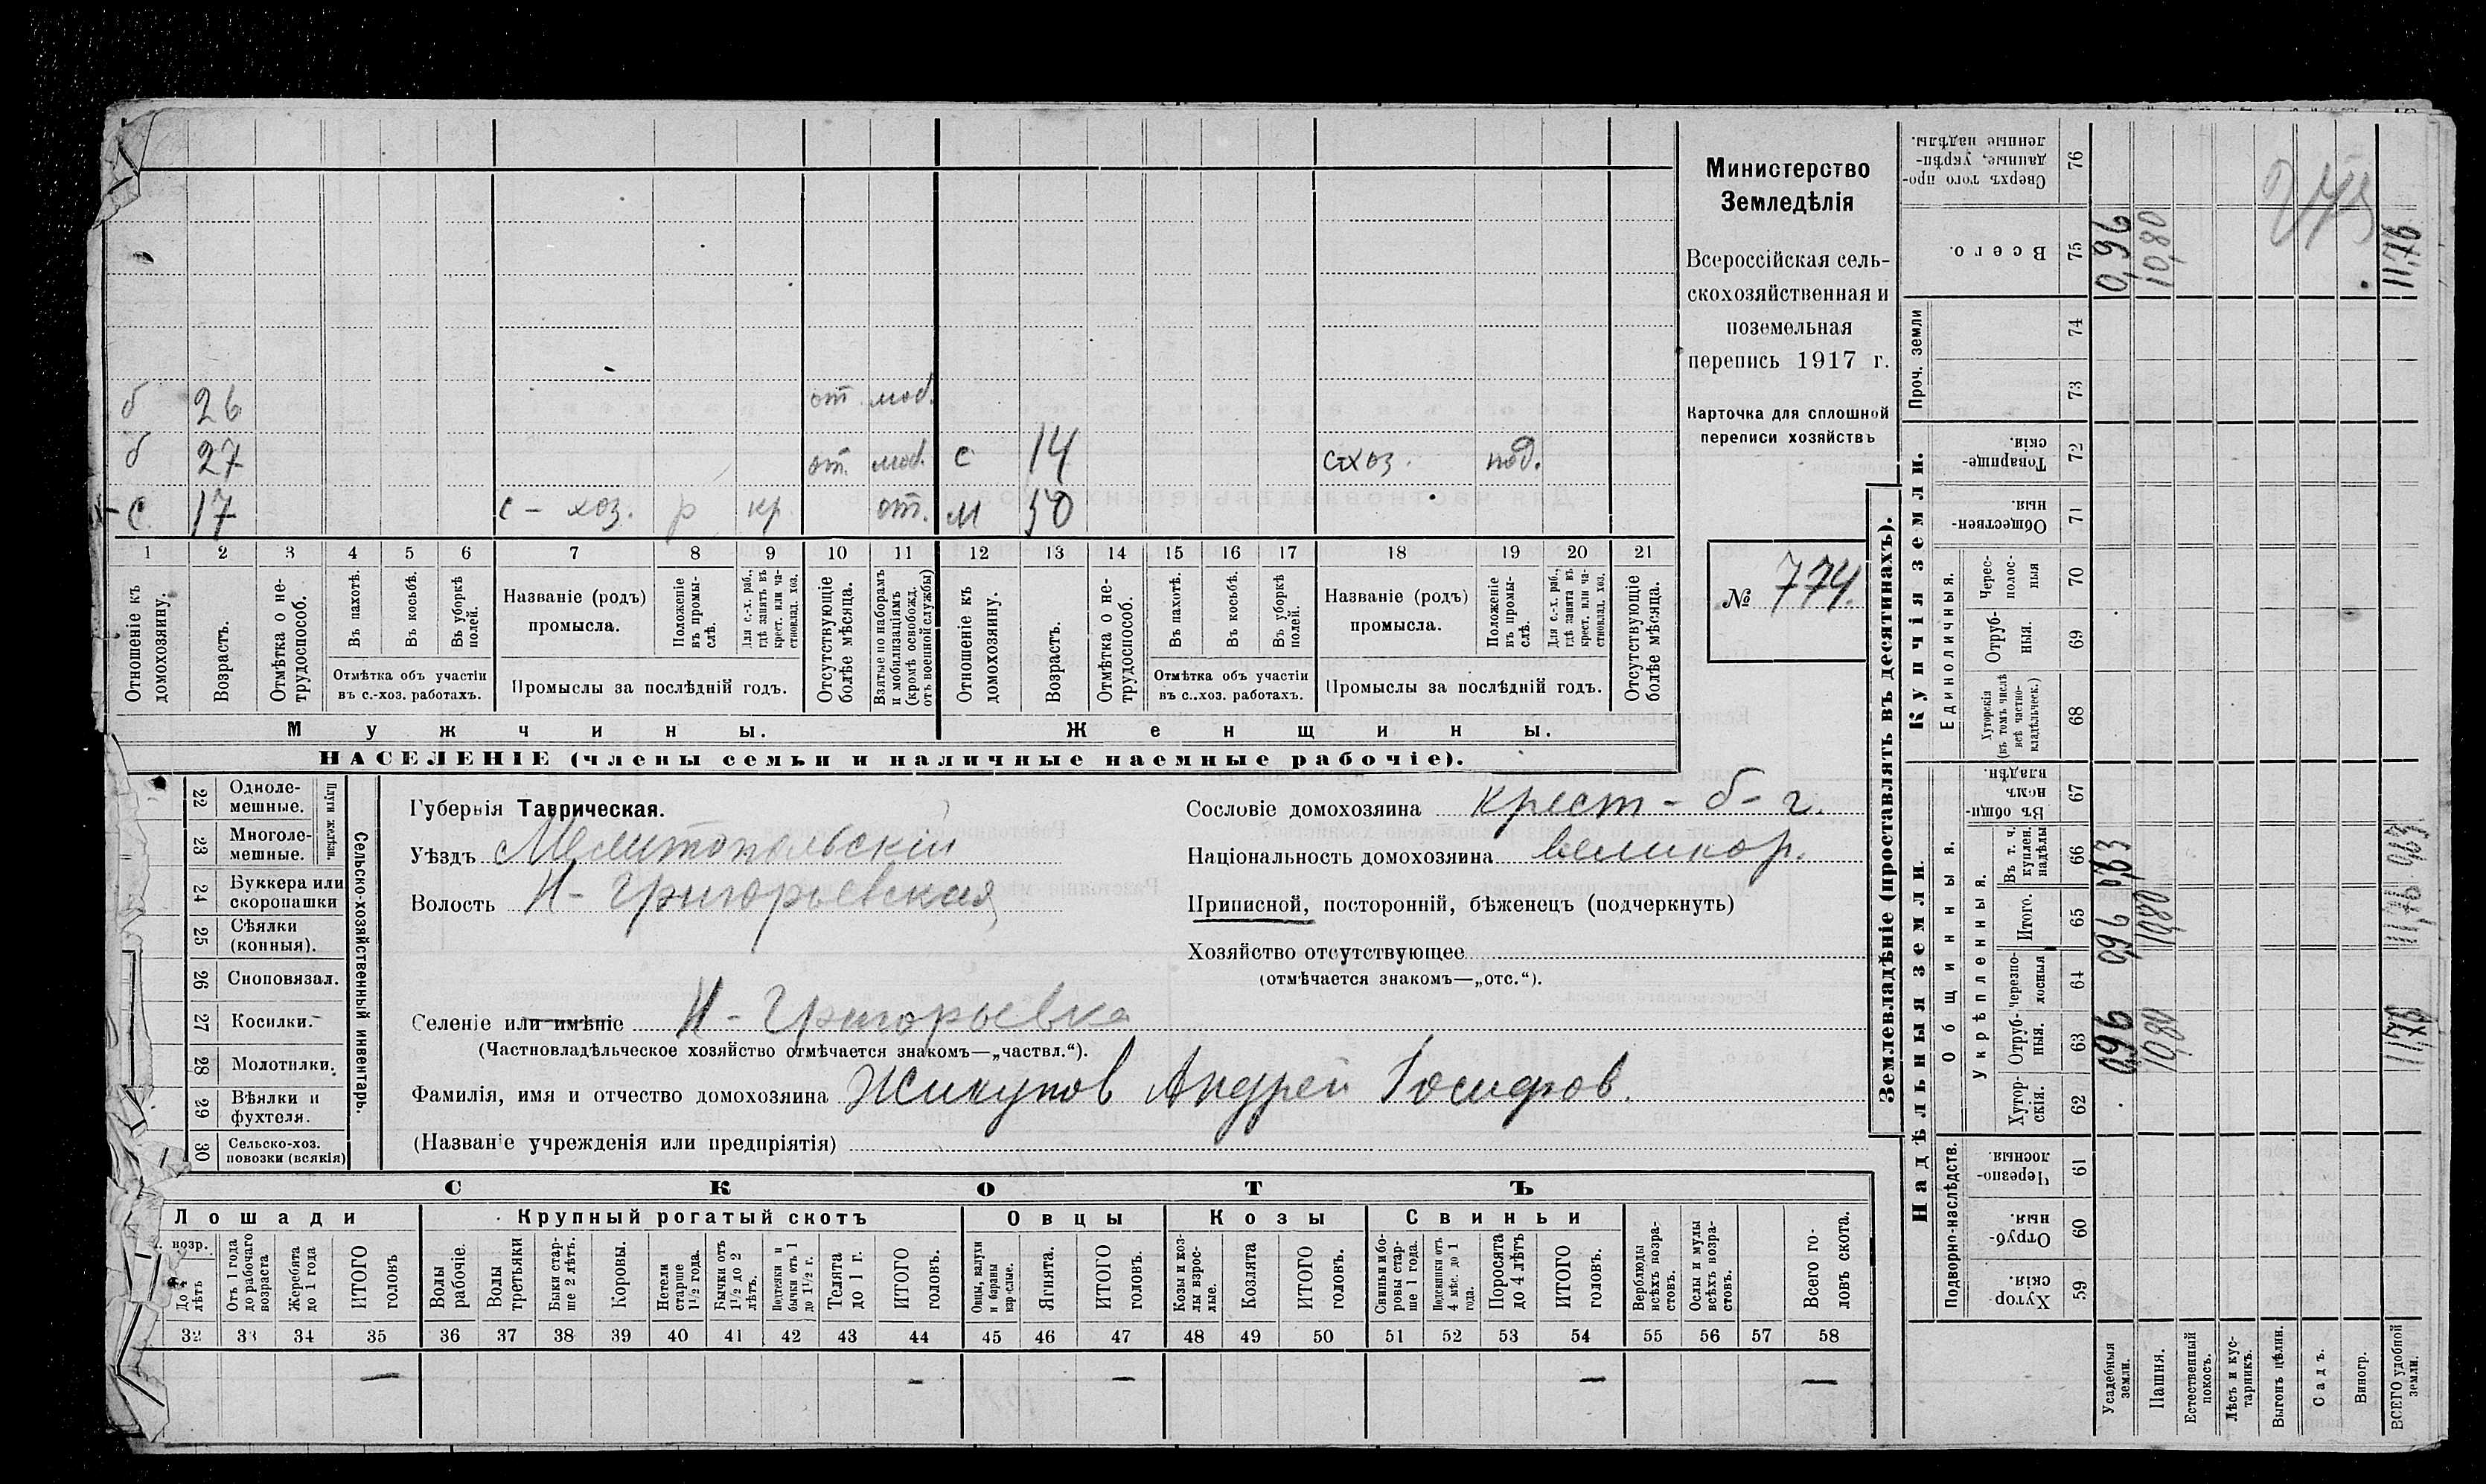 Министерство
Земледѣлія
Всероссійская сель-
скохозяйственная и
поземельная
перепись 1917 г.
Карточка для сплошной
переписи хозяйствъ
№ 774.
б 26 от. моб.
б 27 от. моб. с 14 схоз. под.
с 17 с - хоз. р кр от. м 50
1 2 3 4 5 6 7 8 9 10 11 12 13 14 15 16 17 18 19 20 21
Отношеніе къ домохозяину.
Возрастъ.
Отмѣтка о не-трудоспособ.
Въ пахотѣ.
Въ косьбѣ.
Въ уборкѣ полей.
Отмѣтка объ участіи
въ с.-хоз. работахъ.
Названіе (родъ)
промысла.
Положеніе въ промы-слѣ.
Для с.-х. раб., гдѣ занятъ въ крест. или ча-стновлад. хоз.
Промыслы за послѣдній годъ.
Отсутствующіе болѣе мѣсяца.
Взятые по наборамъ и мобилизаціямъ (кромѣ освобожд. отъ военной службы)
Отношеніе къ домохозяину.
Возрастъ.
Отмѣтка о не-трудоспособ.
Въ пахотѣ.
Въ косьбѣ.
Въ уборкѣ полей.
Отмѣтка объ участіи
въ с.-хоз. работахъ.
Названіе (родъ)
промысла.
Положеніе въ промы-слѣ.
Для с.-х. раб., гдѣ занята въ крест. или ча-стновлад. хоз.
Промыслы за послѣдній годъ.
Отсутствующіе болѣе мѣсяца.
Мужчины. Женщины.
НАСЕЛЕНІЕ (члены семьи и наличные наемные рабочіе).
Сельско-хозяйственный инвентарь.
Плуги желѣзн.
22 Одноле-мешные.
23 Многоле-мешные.
24 Буккера или скоропашки
25 Сѣялки (конныя).
26 Сноповязал.
27 Косилки.
28 Молотилки.
29 Вѣялки и фухтеля.
30 Сельско-хоз. повозки (всякія)
Губернія Таврическая.
Уѣздъ Мелитопольскій
Волость Н-Григорьевская
Селеніе или имѣніе Н-Григорьевка
(Частновладѣльческое хозяйство отмѣчается знакомъ—„частвл.“).
Фамилія, имя и отчество домохозяина Жикулов Андрей Iосифов.
(Названіе учрежденія или предпріятія)
Сословіе домохозяина крест-б-г.
Національность домохозяина великор.
Приписной, посторонній, бѣженецъ (подчеркнуть)
Хозяйство отсутствующее
(отмѣчается знакомъ—„отс.“).
СКОТЪ
Лошади Крупный рогатый скотъ Овцы Козы Свиньи
возр.
До 4 лѣтъ
Отъ 1 года до рабочаго возраста
Жеребята до 1 года
ИТОГО головъ
Волы рабочіе.
Волы третьяки
Быки стар-ше 2 лѣтъ.
Коровы.
Нетели старше 1½ года.
Бычки отъ 1½ до 2 лѣтъ.
Подтелки и бычки отъ 1 до 1½ г.
Телята до 1 г.
ИТОГО головъ.
Овцы, валухи и бараны взрослые.
Ягнята.
ИТОГО головъ.
Козы и коз-лы взрос-лые.
Козлята
ИТОГО головъ.
Свиньи и бо-ровы стар-ше 1 года.
Подсвинки отъ 4 мѣс. до 1 года.
Поросята до 4 лѣтъ
ИТОГО головъ.
Верблюды всѣхъ возра-стовъ.
Ослы и мулы всѣхъ возра-стовъ.
Всего го-ловъ скота.
32 33 34 35 36 37 38 39 40 41 42 43 44 45 46 47 48 49 50 51 52 53 54 55 56 57 58
— — — — —
Землевладѣніе (проставлять въ десятинахъ).
Надѣльныя земли. Купчія земли.
Подворно-наслѣдств.
Общинныя.
Укрѣпленныя.
Единоличныя.
Проч. земли
59 Хутор-скія.
60 Отруб-ныя.
61 Черезпо-лосныя.
62 Хутор-скія.
63 Отруб-ныя.
64 черезпо-лосныя
65 Итого.
66 Въ т. ч. куплен. надѣлы
67 Въ общин-номъ владѣн.
68 Хуторскія (въ томъ числѣ всѣ частно-владѣльческ.)
69 Отруб-ныя.
70 Черес-полос-ныя
71 Обществен-ныя
72 Товарище-скія.
73
74
75 Всего.
76 Сверхъ того про-данные, укрѣп-ленные надѣлы.
Усадебныя земли. 0,96 0,96 0,63 0,96
Пашня. 10,80 10,80 10,80
Естественный покосъ.
Лѣсъ и кус-тарникъ.
Выгонъ цѣлин.
Садъ.
Виногр.
ВСЕГО удобной земли. 11,76 11,76 0,63 11,76